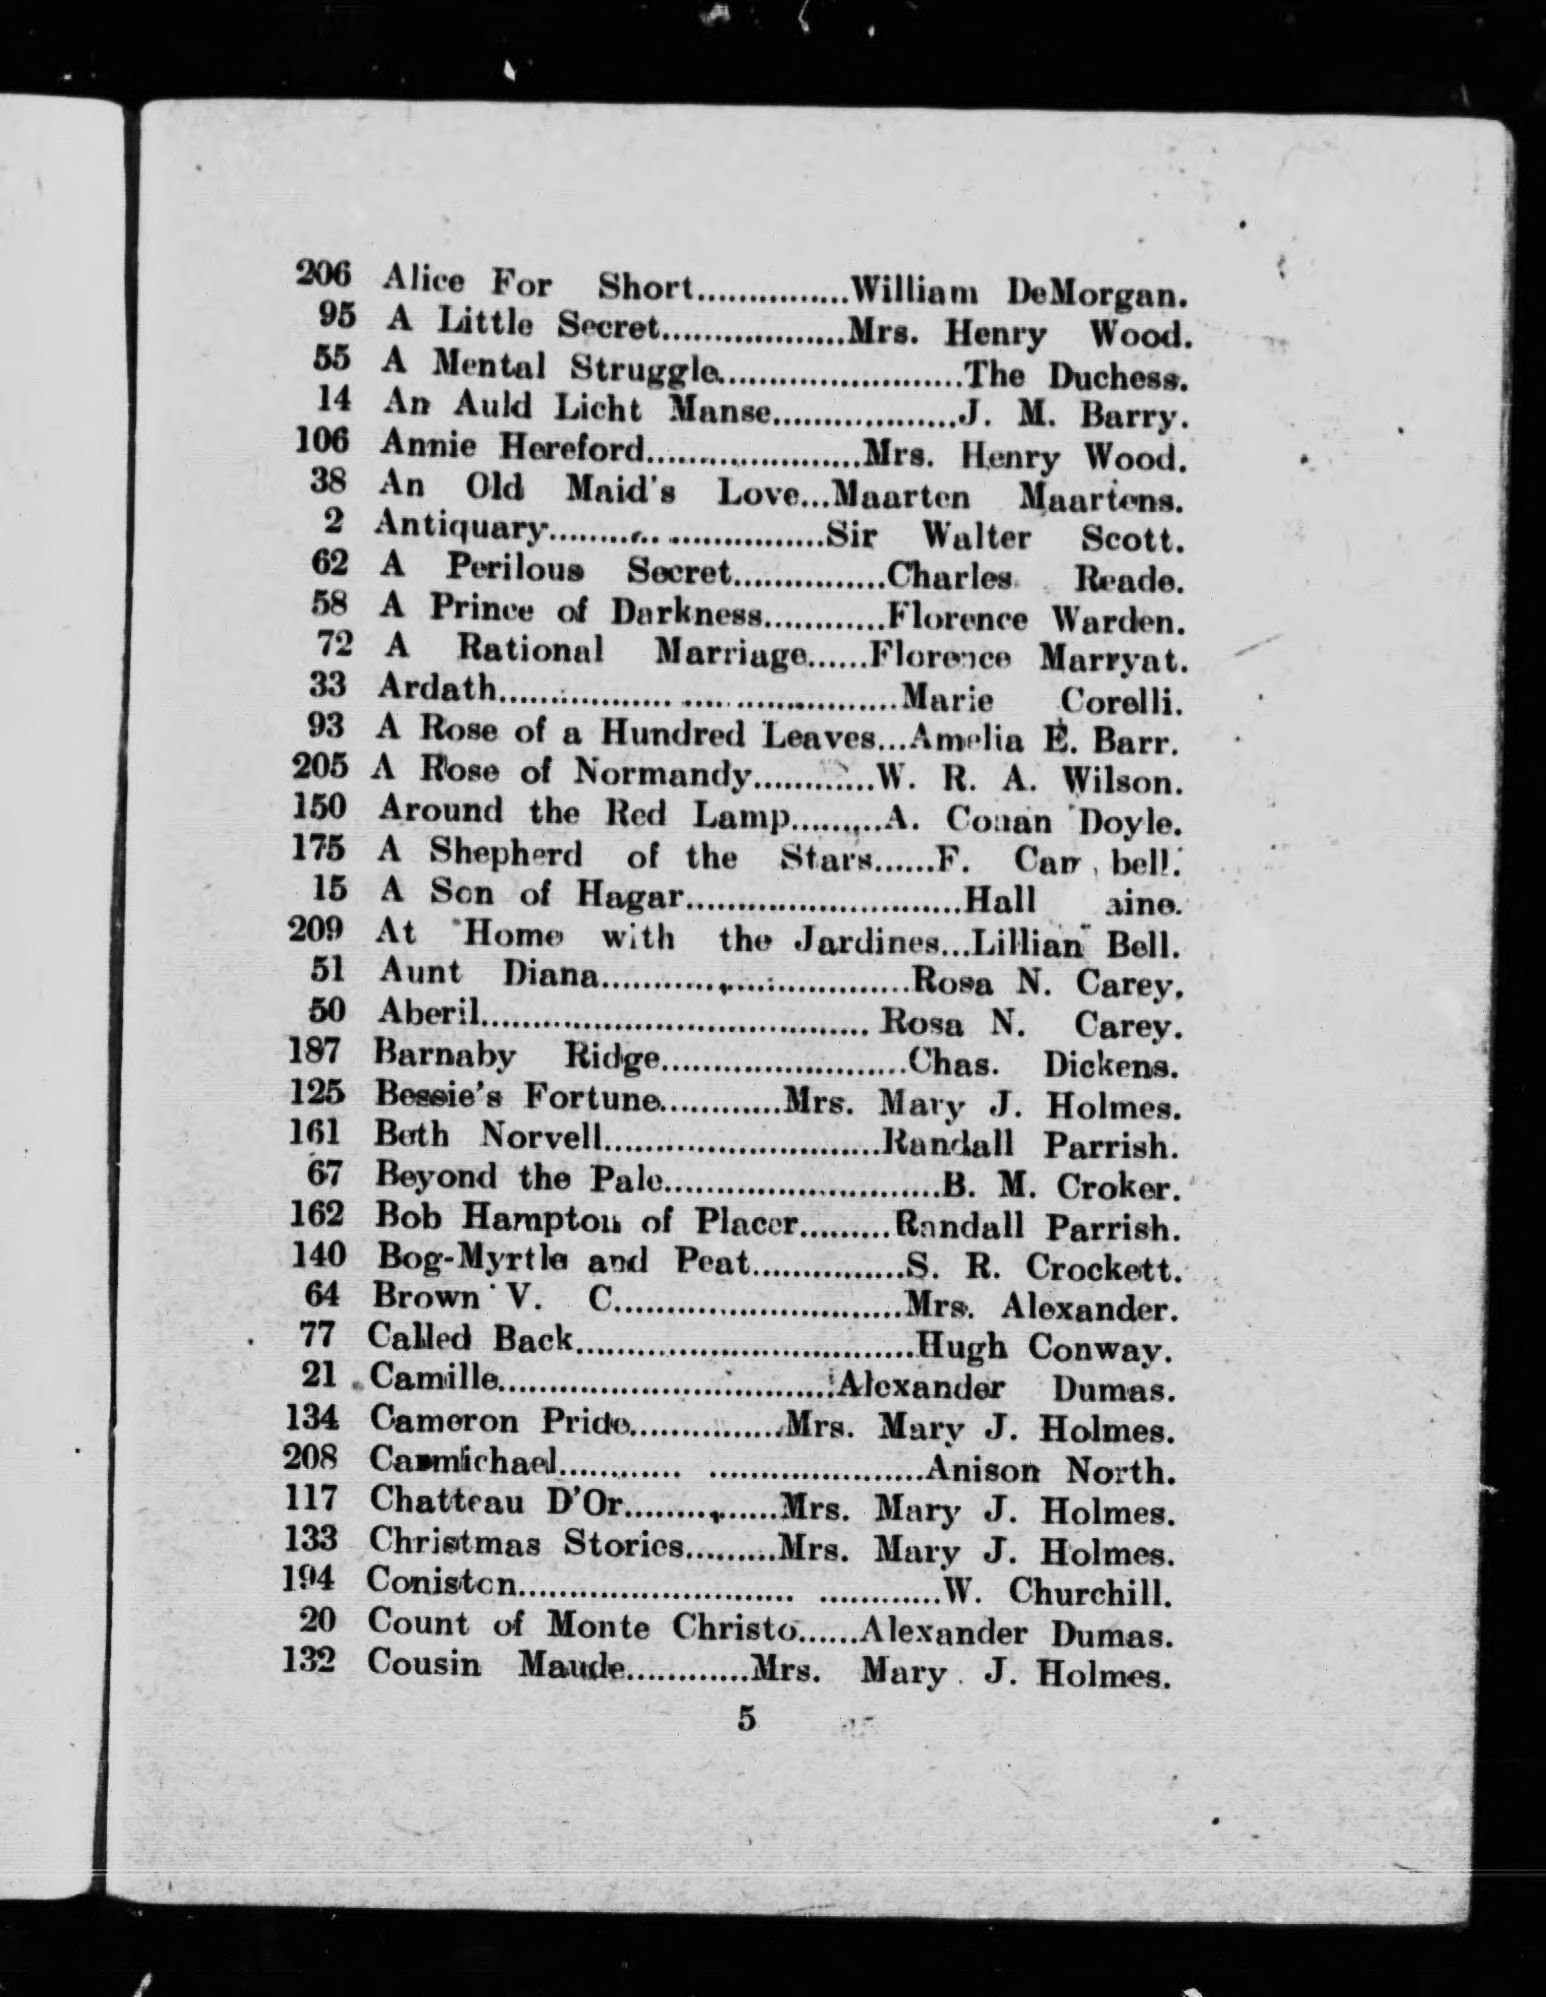 206 Alice For Short...............William DeMorgan.
95 A Little Secret..................Mrs. Henry Wood.
55 A Mental Struggle........................The Duchess.
14 An Auld Licht Manse..................J. M. Barry.
106 Annie Hereford.....................Mrs. Henry Wood.
38 An Old Maid's Love...Maarten Maartens.
2 Antiquary...........................Sir Walter Scott.
62 A Perilous Secret...............Charles Reade.
58 A Prince of Darkness............Florence Warden.
72 A Rational Marriage......Florence Marryat.
33 Ardath.......................................Marie Corelli.
93 A Rose of a Hundred Leaves...Amelia E. Barr.
205 A Rose of Normandy............W. R. A. Wilson.
150 Around the Red Lamp.........A. Conan Doyle.
175 A Shepherd of the Stars......F. bell.
15 A Son of Hagar...........................Hall aine.
209 At Home with the Jardines...Lillian Bell.
51 Aunt Diana..............................Rosa N. Carey.
50 Aberil...................................... Rosa N. Carey.
187 Barnaby Ridge........................Chas. Dickens.
125 Bessie's Fortune............Mrs. Mary J. Holmes.
161 Beth Norvell...........................Randall Parrish.
67 Beyond the Pale...........................B. M. Croker.
162 Bob Hampton of Placer.........Randall Parrish.
140 Bog-Myrtle and Peat...............S. R. Crockett.
64 Brown V. C............................Mrs. Alexander.
77 Called Back.................................Hugh Conway.
21 Camille.................................Alexander Dumas.
134 Cameron Pride...............Mrs. Mary J. Holmes.
208 Carmichael............ .....................Anison North.
117 Chatteau D'Or...............Mrs. Mary J. Holmes.
133 Christmas Stories.........Mrs. Mary J. Holmes.
194 Coniston........................... ............W. Churchill.
20 Count of Monte Christo......Alexander Dumas.
132 Cousin Maude............Mrs. Mary J. Holmes.
5